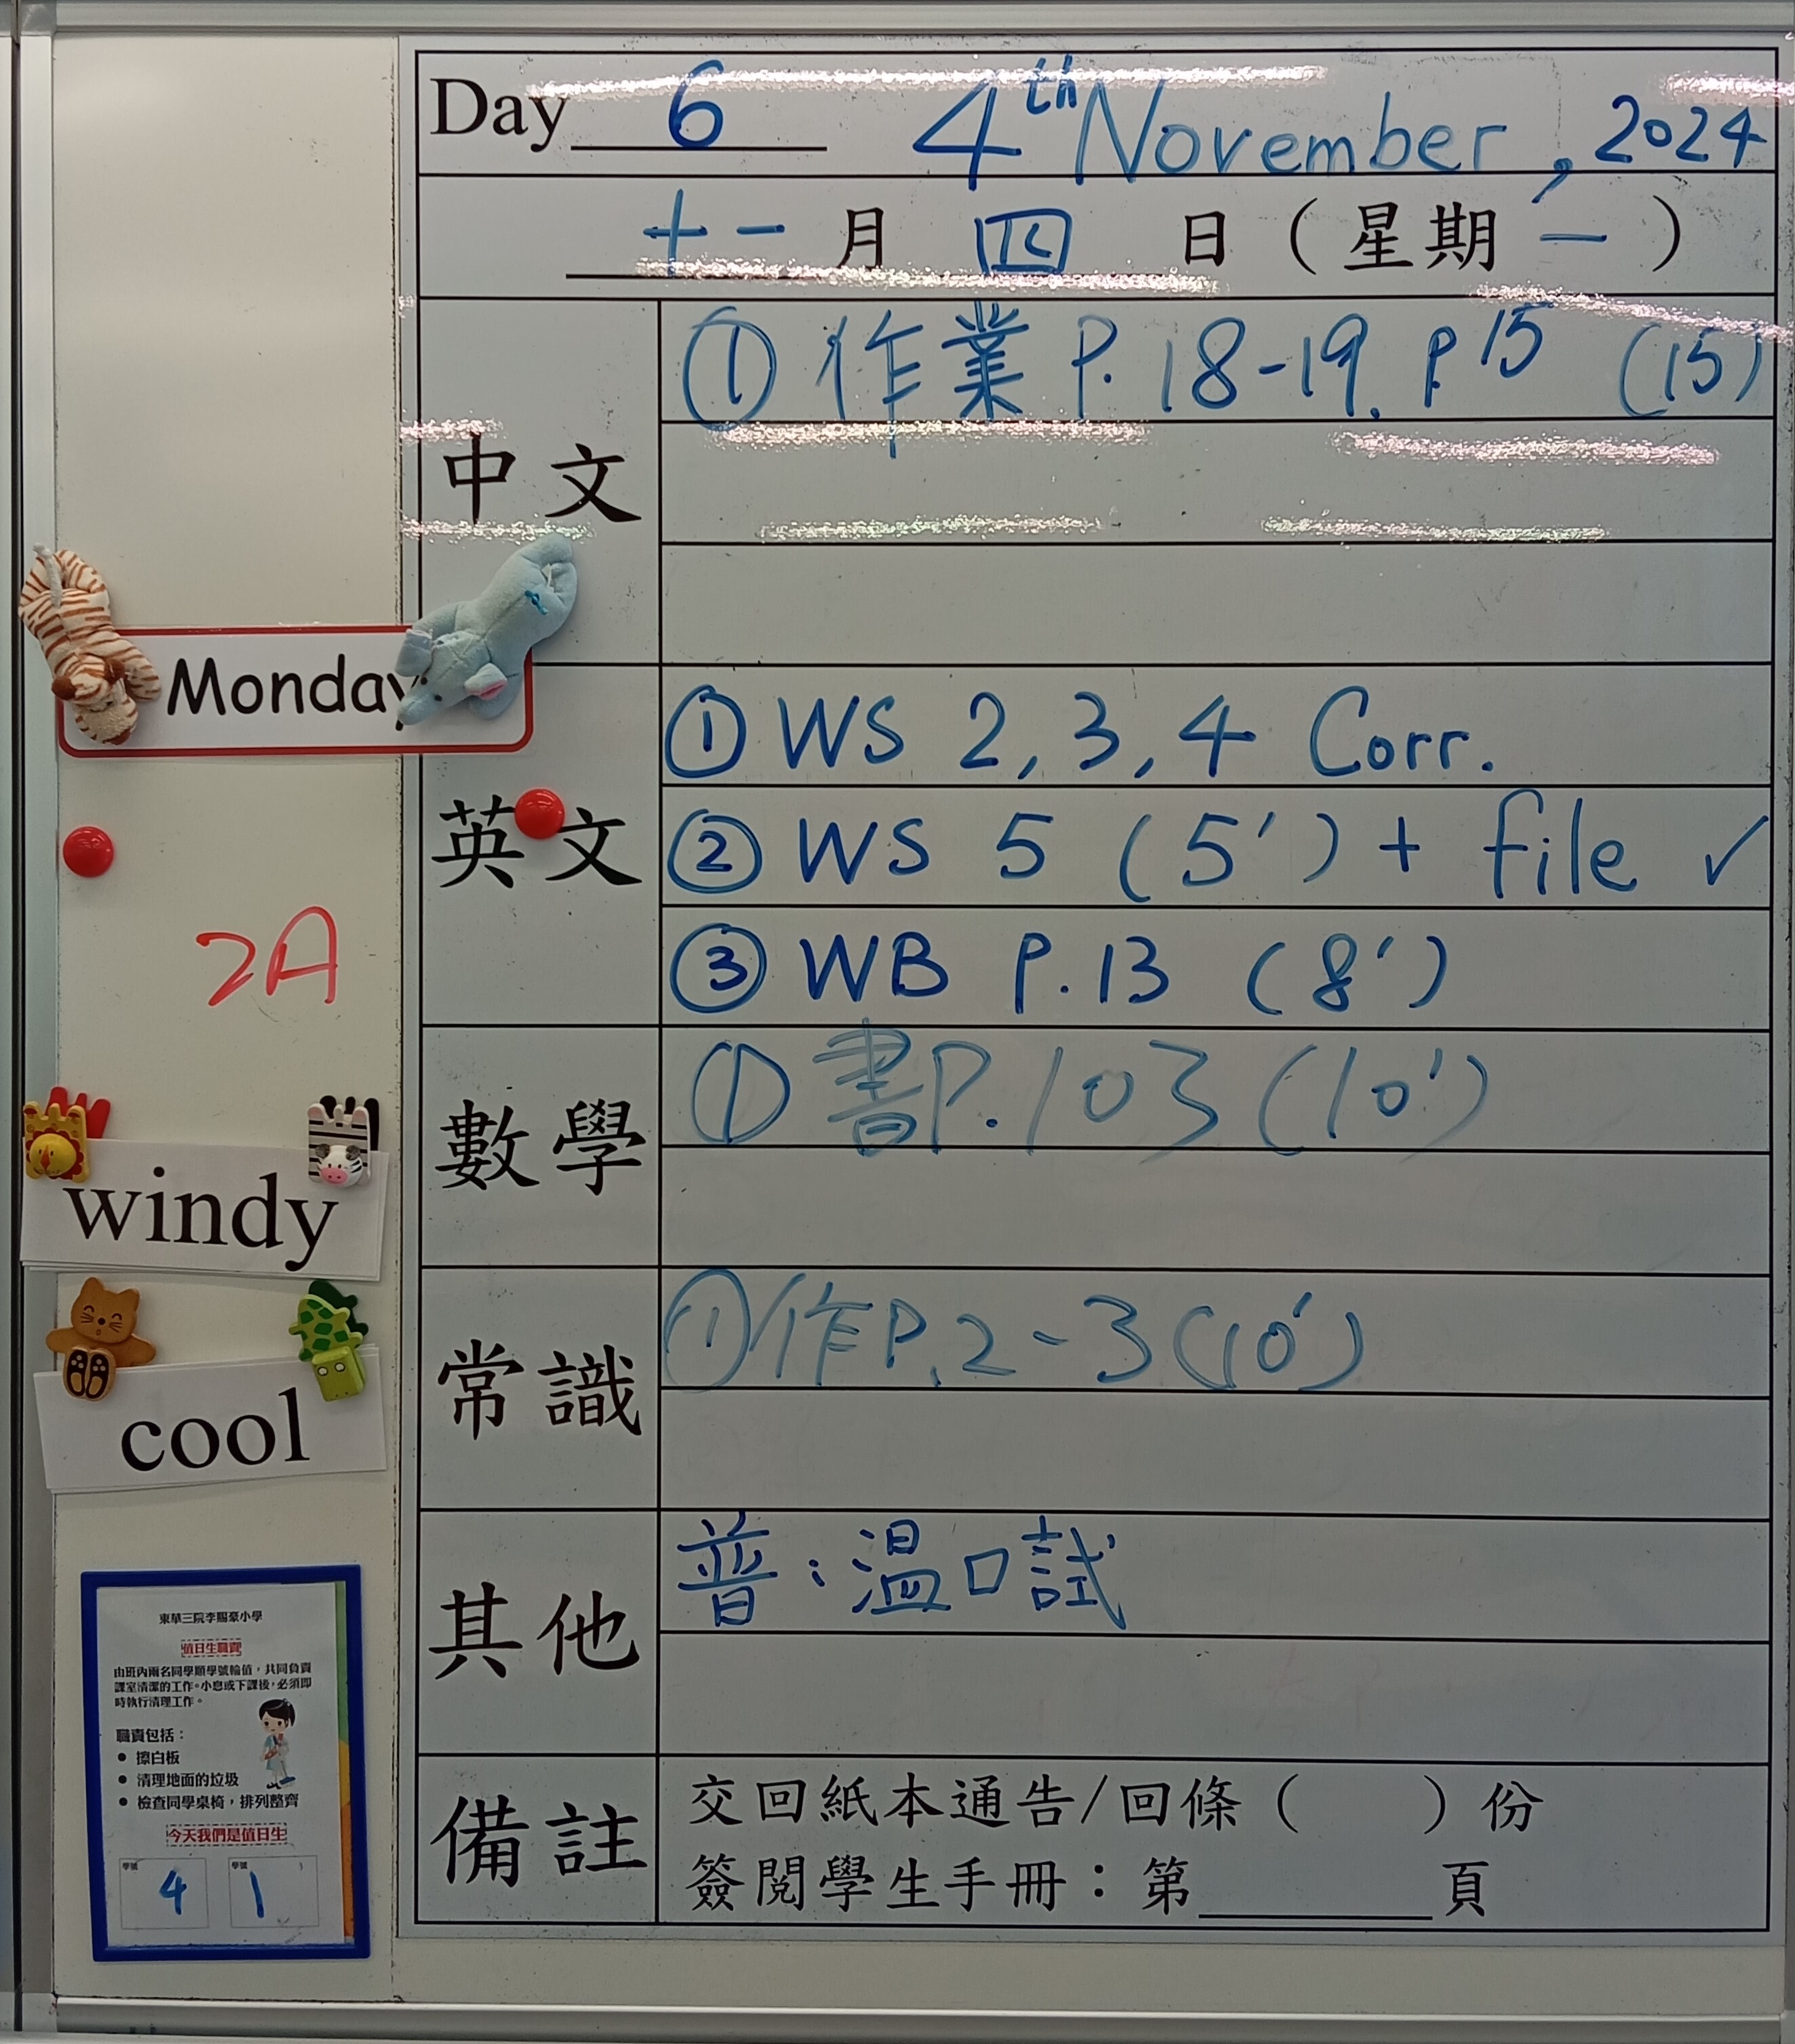 Day 6 4th November, 2024
十一月四日（星期一）
中文
① 作業 P. 18-19. P.15 (15)
Monday
英文
① WS 2, 3, 4 Corr.
② WS 5 (5') + file ✓
③ WB P.13 (8')
2A
數學
① 書P.103 (10')
windy
常識
① 作P.2-3 (10')
cool
其他
普：溫口試
備註
交回紙本通告/回條（　　）份
簽閱學生手冊：第____頁
東華三院李賜豪小學
值日生職責
由班內兩名同學順學號輪值，共同負責
課室清潔的工作。小息或下課後，必須即
時執行清理工作。
職責包括：
● 擦白板
● 清理地面的垃圾
● 檢查同學桌椅，排列整齊
今天我們是值日生
學號 學號
4 1